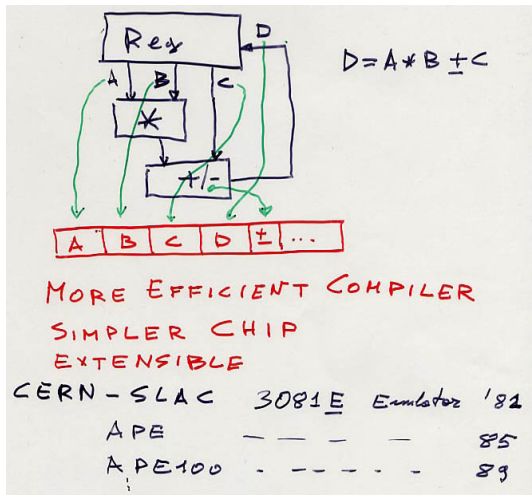 Reg D
D = A * B ± C
A B C
*
+/-
A B C D ± ...
MORE EFFICIENT COMPILER
SIMPLER CHIP
EXTENSIBLE
CERN-SLAC 3081E Emulator '82
APE — — — — 85
APE100 - - - - - - 89